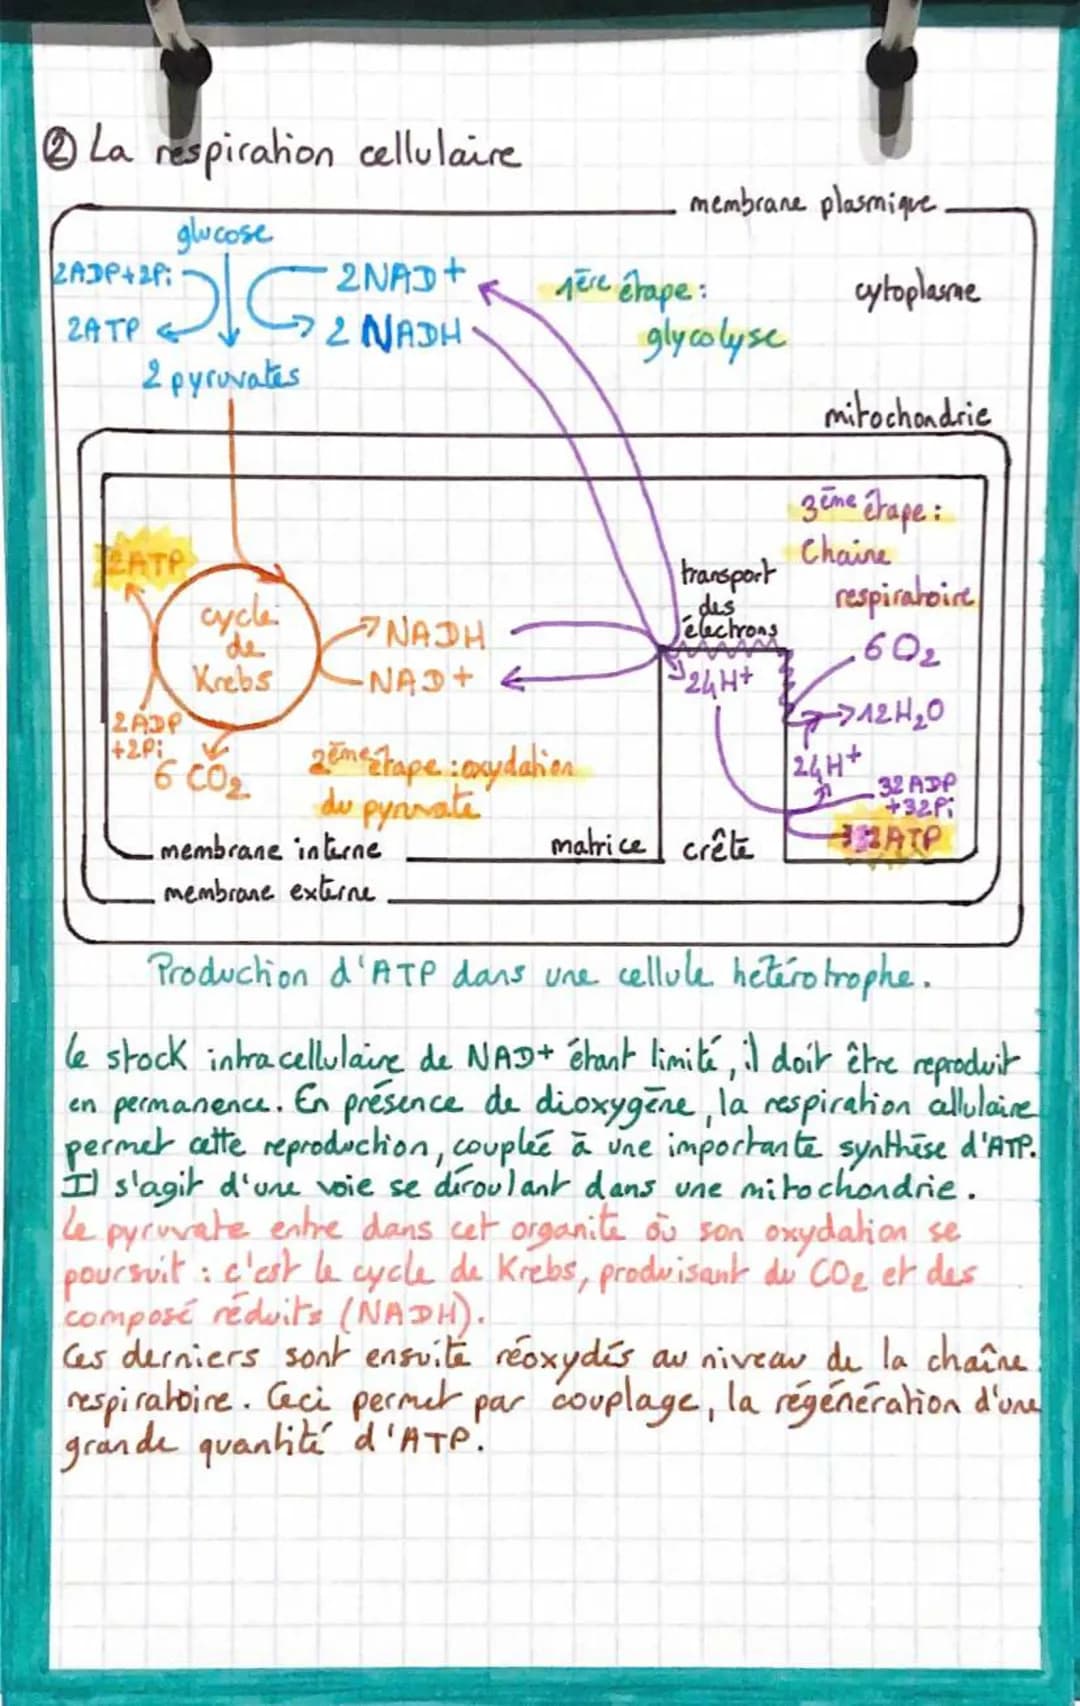 ② La respiration cellulaire
membrane plasmique
glucose
2ADP+2Pi
2NAD+
1ère étape :
cytoplasme
2ATP
2 NADH
glycolyse
2 pyruvates
mitochondrie
3ème étape :
Chaine
respiratoire
2ATP
transport
des
électrons
cycle
de
Krebs
NADH
NAD+
6O2
24H+
12H2O
2ADP
+2Pi
6 CO2
2ème étape : oxydation
du pyruvate
24H+
32ADP
+32Pi
32ATP
membrane interne
matrice
crête
membrane externe
Production d'ATP dans une cellule hétérotrophe.
Le stock intracellulaire de NAD+ étant limité, il doit être reproduit
en permanence. En présence de dioxygène, la respiration cellulaire
permet cette reproduction, couplée à une importante synthèse d'ATP.
Il s'agit d'une voie se déroulant dans une mitochondrie.
Le pyruvate entre dans cet organite où son oxydation se
poursuit : c'est le cycle de Krebs, produisant du CO2 et des
composé réduits (NADH).
Ces derniers sont ensuite réoxydés au niveau de la chaîne
respiratoire. Ceci permet par couplage, la régénération d'une
grande quantité d'ATP.